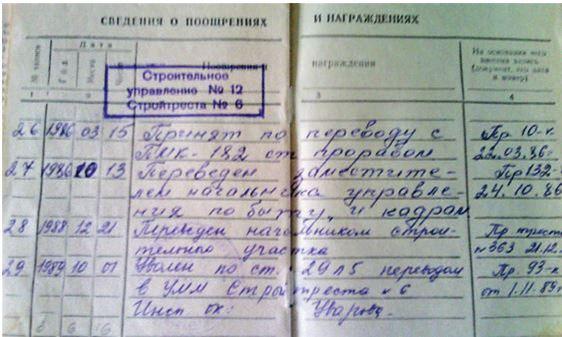 СВЕДЕНИЯ О ПООЩРЕНИЯХ И НАГРАЖДЕНИЯХ
№ записи Дата На основании чего внесена запись (документ, его дата и номер)
Год Число награждения
Строительное
управление № 12
Стройтреста № 6
3 4
26 1986 03 15 Принят по переводу с Пр 10-к
ПМК-182 ст. прорабом 22.03.86г.
27 1986 10 13 Переведен заместите- Пр 132-
лем начальника управле- 24.10.86
ния по быту и кадрам
28 1988 12 21 Переведен начальником строи- Пр треста
тельного участка №363 21.12.
29 1989 10 01 Уволен по ст. 29 п5 переводом Пр. 93-к
в УММ Стройтреста №6 от 1.11.89г
Инсп ок: Уварова.